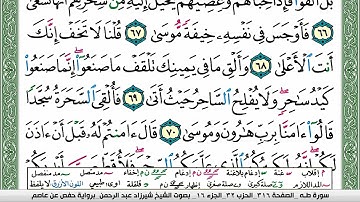 بَلْ أَلْقُوا۟ فَإِذَا حِبَالُهُمْ وَعِصِيُّهُمْ يُخَيَّلُ إِلَيْهِ مِن سِحْرِهِمْ أَنَّهَا تَسْعَىٰ
٦٦ فَأَوْجَسَ فِى نَفْسِهِۦ خِيفَةً مُّوسَىٰ ٦٧ قُلْنَا لَا تَخَفْ إِنَّكَ
أَنتَ ٱلْأَعْلَىٰ ٦٨ وَأَلْقِ مَا فِى يَمِينِكَ تَلْقَفْ مَا صَنَعُوٓا۟ إِنَّمَا صَنَعُوا۟
كَيْدُ سَٰحِرٍ وَلَا يُفْلِحُ ٱلسَّاحِرُ حَيْثُ أَتَىٰ ٦٩ فَأُلْقِىَ ٱلسَّحَرَةُ سُجَّدًا
قَالُوٓا۟ ءَامَنَّا بِرَبِّ هَٰرُونَ وَمُوسَىٰ ٧٠ قَالَ ءَامَنتُمْ لَهُۥ قَبْلَ أَنْ ءَاذَنَ
سورة طه ـ الصفحة ٣١٦ الحزب ٣٢ ـ الجزء ١٦ ـ بصوت الشيخ شيرزاد عبد الرحمن ـ برواية حفص عن عاصم